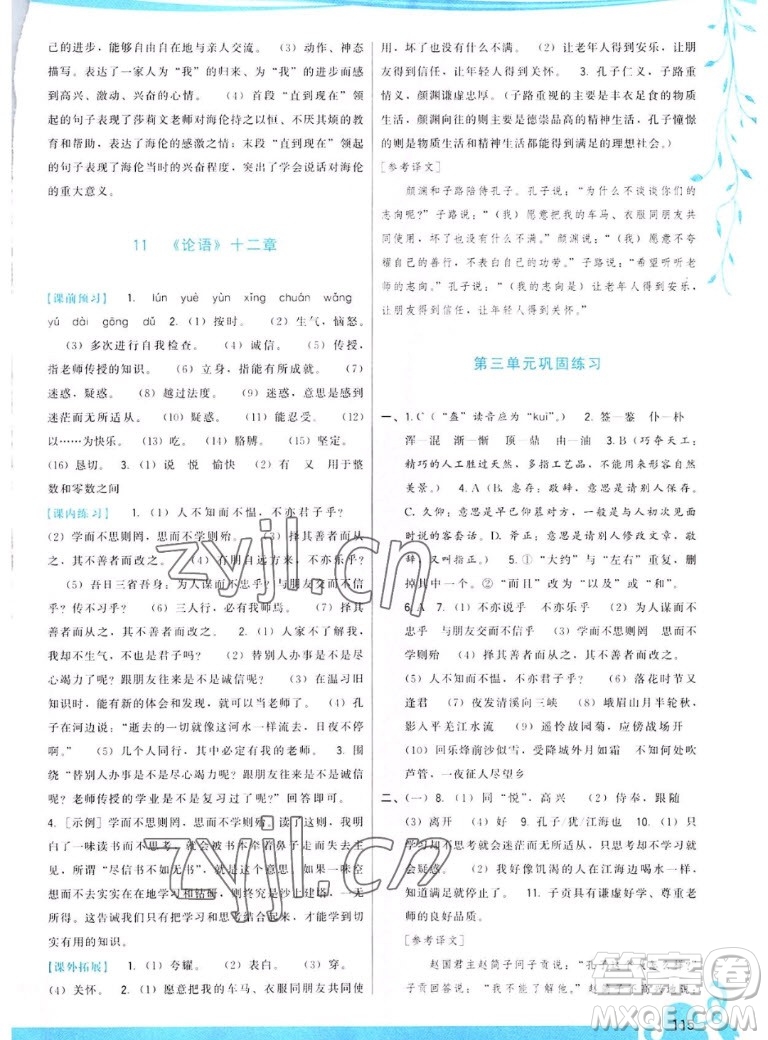 己的进步，能够自在地与亲人交流。 (3) 动作、神态
描写。表达了一家人为“我”的归来、为“我”的进步而感
到高兴、激动、兴奋的心情。 (4) 首段“直到今天”领
起的句子表达了莎莉文老师对海伦的持之以恒、不厌其烦的教育
和帮助，表达了海伦的感激之情；末段“直到今天”领
起的句子表达了海伦当时的兴奋程度，突出了学会说话对海伦
的重大意义。
11 《论语》十二章
[课前预习] 1. lún yuè yùn xǐng chuán wǎng
yú dài gōng dǔ 2. (1) 按时。 (2) 生气，恼怒。
(3) 多次进行自我检查。 (4) 诚信。 (5) 传授，
指老师传授的知识。 (6) 立身，指能有所成就。 (7)
迷惑，疑惑。 (8) 越过法度。 (9) 迷惑，意思是感到
迷茫而无所适从。 (10) 疑惑。 (11) 能忍受。 (12)
以……为快乐。 (13) 吃。 (14) 胳膊。 (15) 坚定。
(16) 恳切。 3. (1) 说 悦 愉快 (2) 有 又 用于整
数和零数之间
[课内练习] 1. (1) 人不知而不愠，不亦君子乎？
(2) 学而不思则罔，思而不学则殆。 (3) 择其善者而从
之，其不善者而改之。 (4) 有朋自远方来，不亦乐乎？
(5) 吾日三省吾身：为人谋而不忠乎？与朋友交而不信
乎？传不习乎？ (6) 三人行，必有我师焉。 (7) 择其
善者而从之，其不善者而改之。 2. (1) 人家不了解我，
我却不生气，不也是君子吗？ (2) 替别人办事是不是尽
心竭力呢？跟朋友往来是不是诚信呢？ (3) 在温习旧
知识时，能有新的体会，就可以当老师了。 (4) 孔
子在河边说：“逝去的一切就像这河水一样流去，日夜不
停。” (5) 几个人同行，其中必定有我的老师。 3. 围
绕“替别人办事是不是尽心竭力呢？跟朋友往来是不是诚信
呢？老师传授的学业是不是复习过了呢？”回答即可。
4. [示例] 学而不思则罔，思而不学则殆。读了这则，我明
白了一味读书而不思考，就会被书本牵着鼻子走，从而被书本
所累，所谓“尽信书不如无书”；而如果只是一味空想而不去
实实在在地学习和钻研，则究竟是沙上建塔，一无
所得。只有把学习和思考结合起来，才能学到切实
有用的知识。
[课外拓展] 1. (1) 夸耀。 (2) 表白。 (3) 穿。
(4) 关怀。 2. (1) 愿意把我的车马、衣服同朋友共同使
用，坏了也没有什么不满。 (2) 让老年人得到安乐，让朋
友得到信任，让年轻人得到关怀。 3. 孔子仁义，子路重
情义，颜渊谦虚忠厚。（子路重视的是丰衣足食的物质
生活，颜渊向往的是德崇品高的精神生活，孔子憧憬
的则是物质生活和精神生活都能得到满足的理想社会。）
[参考译文]
颜渊和子路陪侍孔子。孔子说：“为什么不谈谈你们的
志向呢？”子路说：“（我）愿意把我的车马、衣服同朋友共
同使用，坏了也没有什么不满。”颜渊说：“我愿意不夸
耀自己的善行，不表白自己的功劳。”子路说：“希望听听老
师的志向。”孔子说：“（我的志向是）让老年人得到安乐，
让朋友得到信任，让年轻人得到关怀。”
第三单元巩固练习
一、1. C（“盔”读音应为“kuī”） 2. 签—鉴 仆—朴
浑—混 渐—惭 顶—鼎 由—油 3. B（巧夺天工：
精巧的人工胜过天然，多指工艺品，不能用于形容自然
美景。） 4. A（B. 惠存：敬辞，意思是请保存。
C. 久仰：意思是仰慕已久，是初次见面时
说的客套话。 D. 斧正：意思是请别人修改文章，敬
辞；又叫指正。） 5. ①“大约”与“左右”重复，删
掉其中一个。②“而且”改为“以及”或“和”。
6. A 7. (1) 不亦说乎 不亦乐乎 (2) 为人谋而不
忠乎 与朋友交而不信乎 (3) 学而不思则罔 思而不
学则殆 (4) 择其善者而从之 其不善者而改之。
(5) 海日生残夜 江春入旧年 (6) 落花时节又
逢君 (7) 夜发清溪向三峡 (8) 峨眉山月半轮秋，
影入平羌江水流 (9) 遥怜故园菊，应傍战场开
(10) 回乐烽前沙似雪，受降城外月如霜。不知何处吹
芦管，一夜征人尽望乡
二、(一) 8. (1) 同“悦”，高兴 (2) 侍奉，跟随
(3) 离开 (4) 好 9. 孔子/犹/江海也
10. (1) 只读书学习而不思考就
会疑惑。 (2) 好像饥渴的人在江海边喝水一
样，喝饱就知足了。 11. 子贡具有谦虚好学、尊重老
师的良好品质。
[参考译文]
赵国君主赵简子问子贡说：“孔子
子贡回答说：“我不能了解他。”
115
zyjl.cn
zyjl.cn
答案卷
MXQE.COM